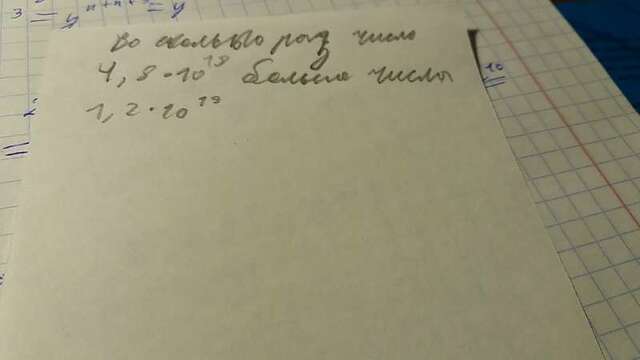 3 = y^{n+n+3} = y
Во сколько раз число
4,8·10^{18} больше числа
1,2·10^{19}
10